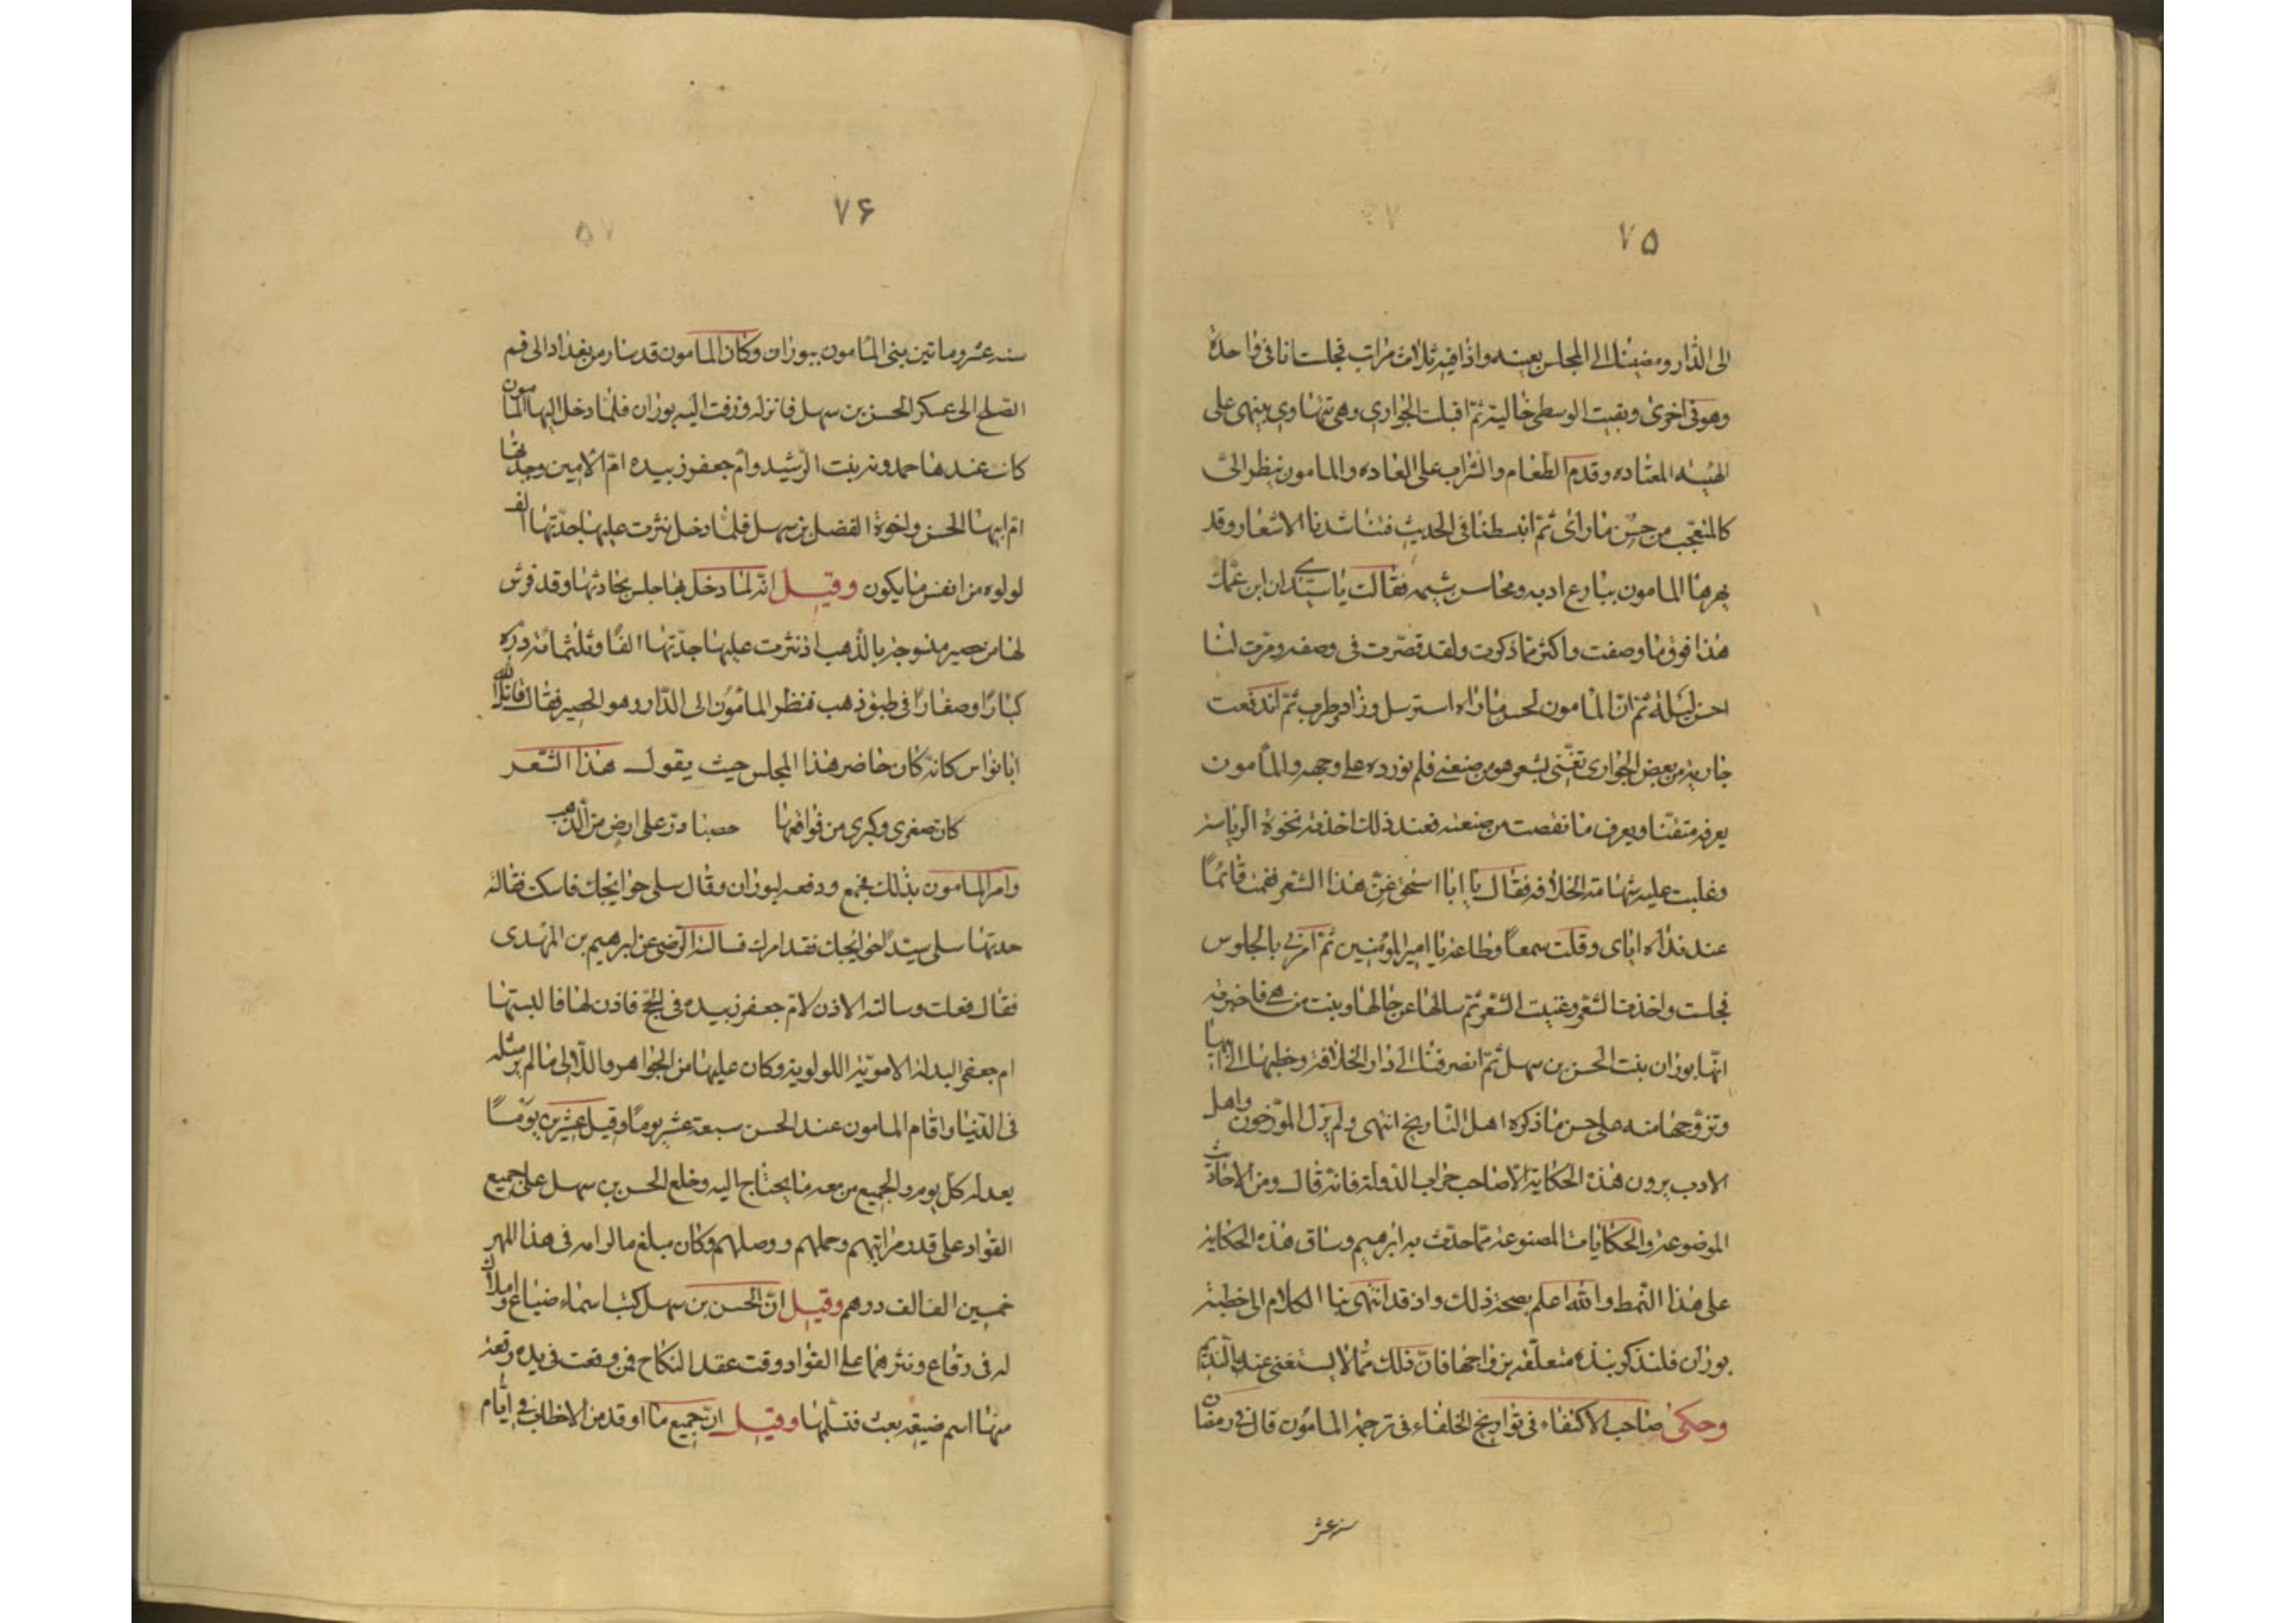 ٧۵
الى الدار ومضينا الى المجلس بعينه واذا فيه ثلاث مراتب فجلست انا فى واحدة
وهو فى اخرى وبقيت الوسطى خالية ثم اقبلت الجوارى وهى تتهادى بينهى على
الهيئه المعتاده وقدم الطعام والشراب على العاده والمامون ينظر الىّ
كالمتعجب من حسن ما راى ثم انبسطنا فى الحديث فتناشدنا الاشعار وقد
بهرها المامون ببارع ادبه ومحاسن شيمه فقالت يا سيدى ان ابن عمك
هذا فوق ما وصفت واكثر مما ذكرت ولقد قصرت فى وصفه ومرت لنا
احسن ليلة ثم انّ المامون لحسن ما راه استرسل وزاد طربه ثم اندفعت
جارية من بعض الجوارى تغنّى بشعر هو من صنعتى فلم تورده على وجهه والمأمون
يعرفه متقنا ويعرف ما نقصت من صنعته فعند ذلك اخذته نخوة الرياسة
وغلبت عليه شهامة الخلافه فقال يا ابا اسحق غنّ هذا الشعر فقمت قائمًا
عند نداه اياى وقلت سمعًا وطاعة يا امير المؤمنين ثم امرنى بالجلوس
فجلست واخذت الشعر وغنيت الشعر ثم سالها عن حالها وبنت من هى فاخبرته
انّها بوران بنت الحسن بن سهل ثمّ انصرفنا الى دار الخلافة وخطبها الى ابيها
وتزوجها منه على حسن ما ذكره اهل التاريخ انتهى ولم يزل المؤرخون واهل
الادب يرون هذه الحكاية الا صاحب جراب الدولة فانه قال ومن الاحاديث
الموضوعة والحكايات المصنوعة مما حدث به ابرهيم وساق هذه الحكاية
على هذا النمط والله اعلم بصحة ذلك واذ قد انتهى بنا الكلام الى خطبة
بوران فلنذكر نبذة متعلقة بزواجها فانّ ذلك مما لا يستغنى عنه النديم
وحكى صاحب الاكتفاء فى تواريخ الخلفاء فى ترجمة المامون قال فى رمضان
سنة عشر
٧۶
سنه عشر وماتين بنى المامون ببوران وكان المامون قد سار من بغداد الى فم
الصلح الى عسكر الحسن بن سهل فانزله وزفت اليه بوران فلما دخل اليها المامون
كانت عندها حمدونة بنت الرّشيد وام جعفر زبيده امّ الامين وجدتها
امّ ابيها الحسن واخوة الفضل بن سهل فلما دخل نثرت عليها جدّتها الف
لولوه من انفس ما يكون وقيل انّه لما دخل بها جلس يحادثها وقد فرش
لها من حصير منسوجة بالذّهب اذ نثرت عليها جدّتها الفًا وثلثمائة درة
كبارًا وصغارًا فى طبق ذهب فنظر المأمون الى الدّار وهو الحصير فقال قاتل الله
ابا نواس كانه كان حاضر هذا المجلس حيث يقول هذا الشعر
كان صغرى وكبرى من فواقعها حصباء در على ارض من الذهب
وامر المامون بذلك فجمع ودفعه لبوران وقال سلى حوايجك فاسكت فقالت
جدتها سلى سيدك حوايجك فقد امرك فسالت الرضى عن ابرهيم بن المهدى
فقال فعلت وسالته الاذن لامّ جعفر زبيده فى الحج فاذن لها فالبستها
ام جعفر البدلة الامويّة اللولوية وكان عليها من الجواهر واللآلى ما لم ير مثله
فى الدّنيا واقام المامون عند الحسن سبعة عشر يومًا وقيل عشرين يومًا
يعد له كل يوم والجميع من معه ما يحتاج اليه وخلع الحسن بن سهل على جميع
القواد على قدر مراتبهم وحملهم ووصلهم وكان مبلغ ما لزامه فى هذا المهر
خمسين الف الف درهم وقيل انّ الحسن بن سهل كتب اسماء ضياع واملاك
له فى رقاع ونثرها على القواد وقت عقد النكاح فمن وقعت فى يده رقعة
منها اسم ضيعة بعث فتسلّمها وقيل ان جميع ما اوقد من الاحطاب فى ايّام